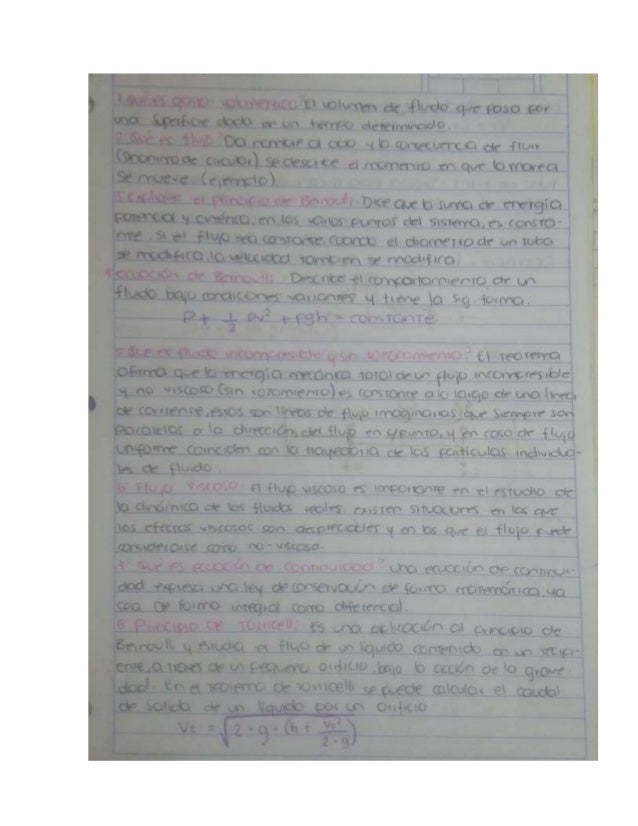 1. Qué es gasto volumetrico? El volumen de fluido que pasa por
una superficie dada en un tiempo determinado.
2. Qué es flujo? Da nombre al acto y la consecuencia de fluir
(sinonimo de circular). se describe el momento en que la marea
se mueve (ejemplo)
3. Explique el principio de Bernoulli Dice que la suma de energía
potencial y cinética, en los varios puntos del sistema, es consta-
nte, si el flujo sea constante. Cuando el diametro de un tubo
se modifica, la velocidad tambien se modifica.
4. ecuación de Bernoulli: Describe el comportamiento de un
fluido bajo condiciones variantes y tiene la sig. forma.
P + 1/2 ρv² + ρgh = constante
5. Que es fluido incompresible y sin rozonamiento? El teorema
afirma que la energía mecánica total de un flujo incompresible
y no viscoso (sin rozamiento) es constante a lo largo de una linea
de corriente, estos son líneas de flujo imaginarias que siempre son
paralelas a la dirección del flujo en c/punto, y en caso de flujo
uniforme coinciden con la trayectoria de las particulas individua-
les de fluido.
6. Flujo viscoso: El flujo viscoso es importante en el estudio de
la dinámica de los fluidos reales, existen situaciones en las que
los efectos viscosos son despreciables y en los que el flujo puede
considerarse como no-viscoso.
7. Qué es ecuación de continuidad? una ecuación de continui-
dad expresa una ley de conservación de forma matemática, ya
sea de forma integral como diferencial.
8. Principio de Torricelli: Es una aplicación al principio de
Bernoulli y Estudia el flujo de un liquido contenido en un recipi-
ente, a traves de un pequeño orificio, bajo la acción de la grave-
dad. En el teorema de torricelli se puede calcular el caudal
de salida de un liquido por un orificio
Vt = √(2 · g · (h + v₀²/2 · g))